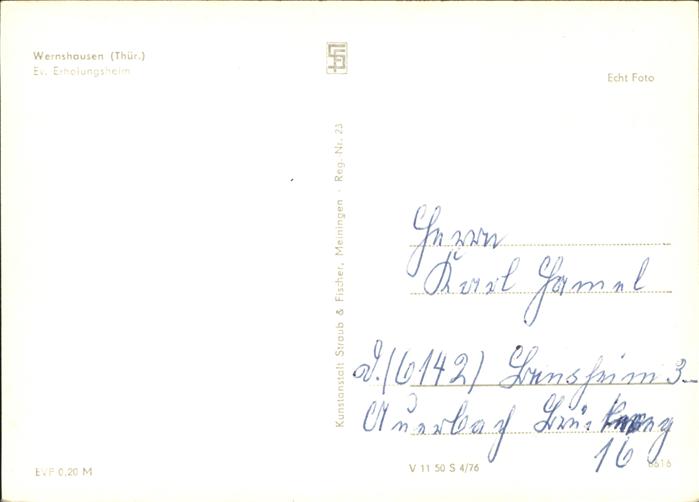 Wernshausen (Thür.)
Ev. Erholungsheim
Echt Foto
Kunstanstalt Straub & Fischer, Meiningen · Reg.-Nr. 23
Herrn
Karl Hamel
D.(6142) Bensheim 3-
Auerbach
16
EVP 0,20 M
V 11 50 S 4/76